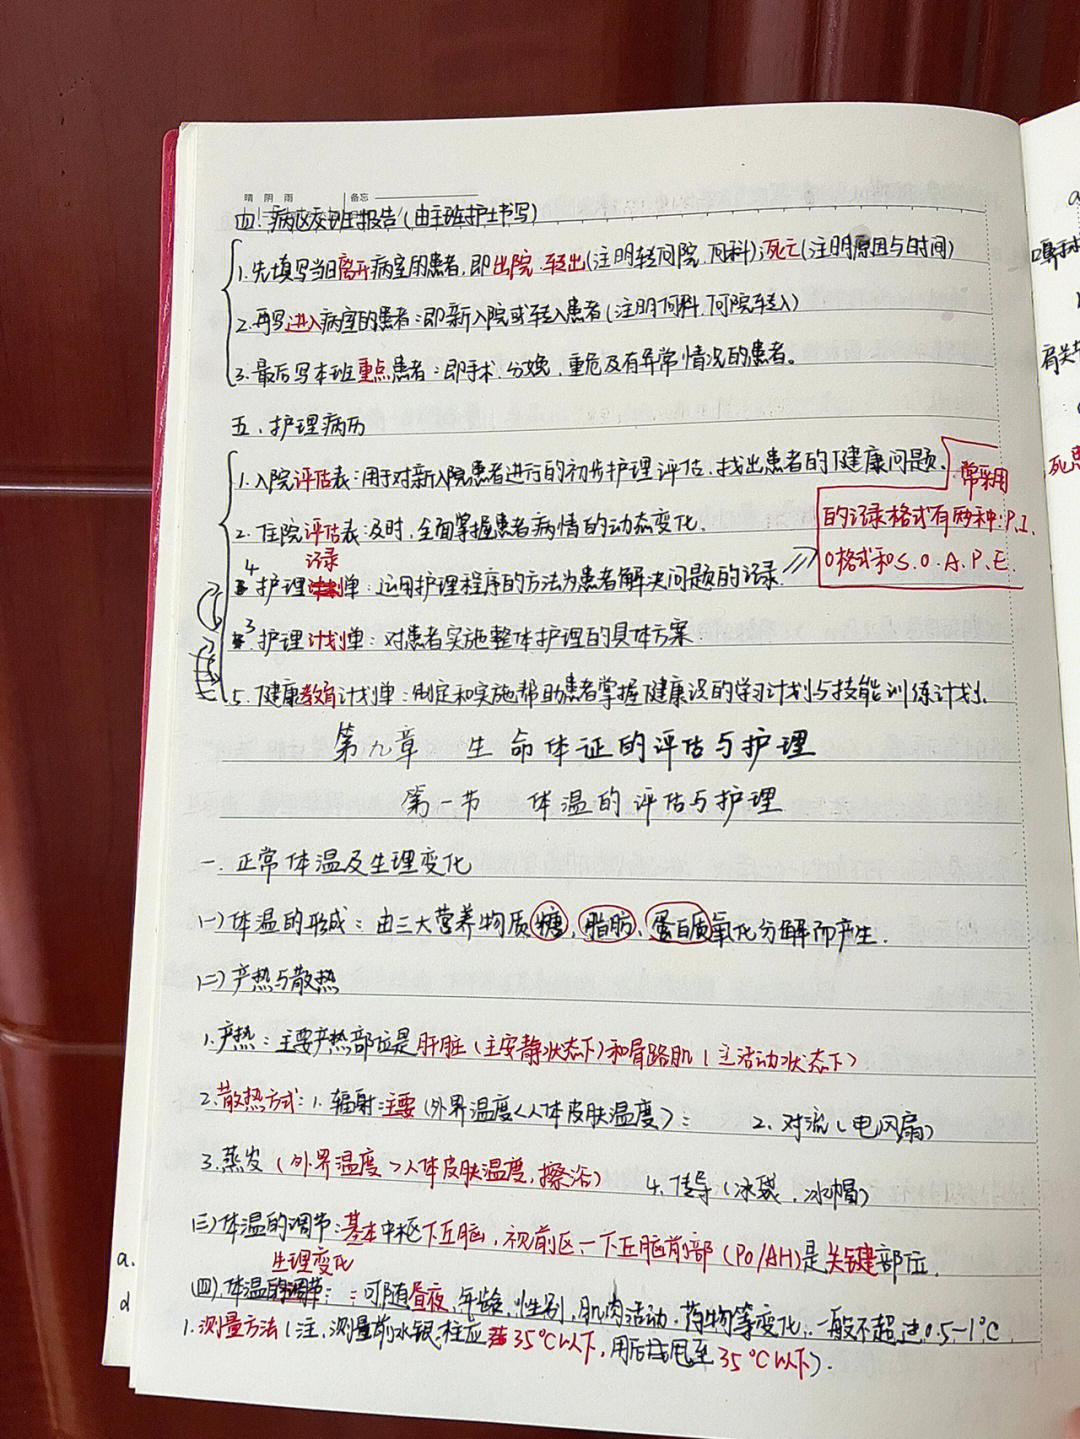 晴 阴 雨 备忘
四、病区交班报告(由主班护士书写)
1.先填写当日离开病室的患者,即出院、转出(注明转何院、何科);死亡(注明原因与时间)
2.再写进入病室的患者:即新入院或转入患者(注明何科、何院转入)
3.最后写本班重点患者:即手术、分娩、重危及有异常情况的患者。
五、护理病历
1.入院评估表:用于对新入院患者进行的初步护理评估、找出患者的健康问题、
常采用
的记录格式有两种:P.I.
O格式和S.O.A.P.E.
2.住院评估表:及时、全面掌握患者病情的动态变化、
记录
4 护理单:运用护理程序的方法为患者解决问题的记录、
3 护理计划单:对患者实施整体护理的具体方案
5.健康教育计划单:制定和实施帮助患者掌握健康识的学习计划与技能训练计划、
第九章 生命体证的评估与护理
第一节 体温的评估与护理
一、正常体温及生理变化
(一)体温的形成:由三大营养物质糖、脂肪、蛋白质氧化分解而产生.
(二)产热与散热
1.产热:主要产热部位是肝脏(主安静状态下)和骨骼肌(主活动状态下)
2.散热方式:1.辐射:主要(外界温度<人体皮肤温度): 2、对流(电风扇)
3.蒸发(外界温度>人体皮肤温度,擦浴) 4.传导(冰袋、冰帽)
(三)体温的调节:基本中枢下丘脑,视前区一下丘脑前部(PO/AH)是关键部位.
生理变化
(四).体温:可随昼夜、年龄、性别、肌肉活动、药物等变化、一般不超过0.5-1℃
1.测量方法(注:测量前水银柱应35℃以下,用后甩至35℃以下).
a.
d
死患